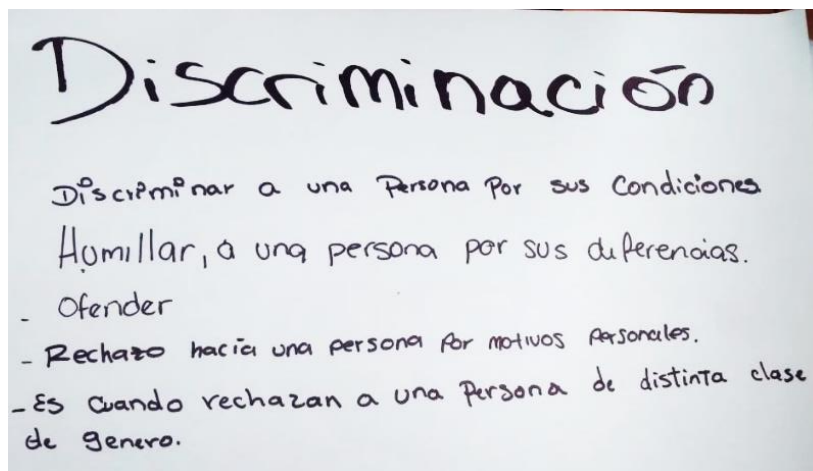 Discriminación
Discriminar a una Persona Por sus Condiciones
Humillar, a una persona por sus diferencias.
- Ofender
- Rechazo hacia una persona por motivos personales.
- Es cuando rechazan a una Persona de distinta clase
de genero.